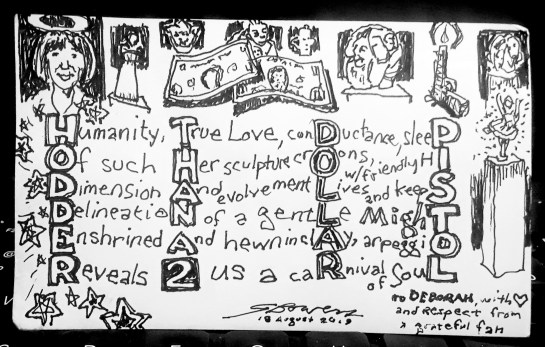 Humanity, True Love, conDuctance, sleeP
Of such Her sculpture crOons, w/friendly HI
Dimension And evolvement Lives and keepS
DelineatioN of a gentLe MighT
Enshrined And hewn in clAy, arpeggiO
Reveals 2 us a caRnival of SouL
18 August 2019
to DEBORAH, with
and respect from
a grateful fan